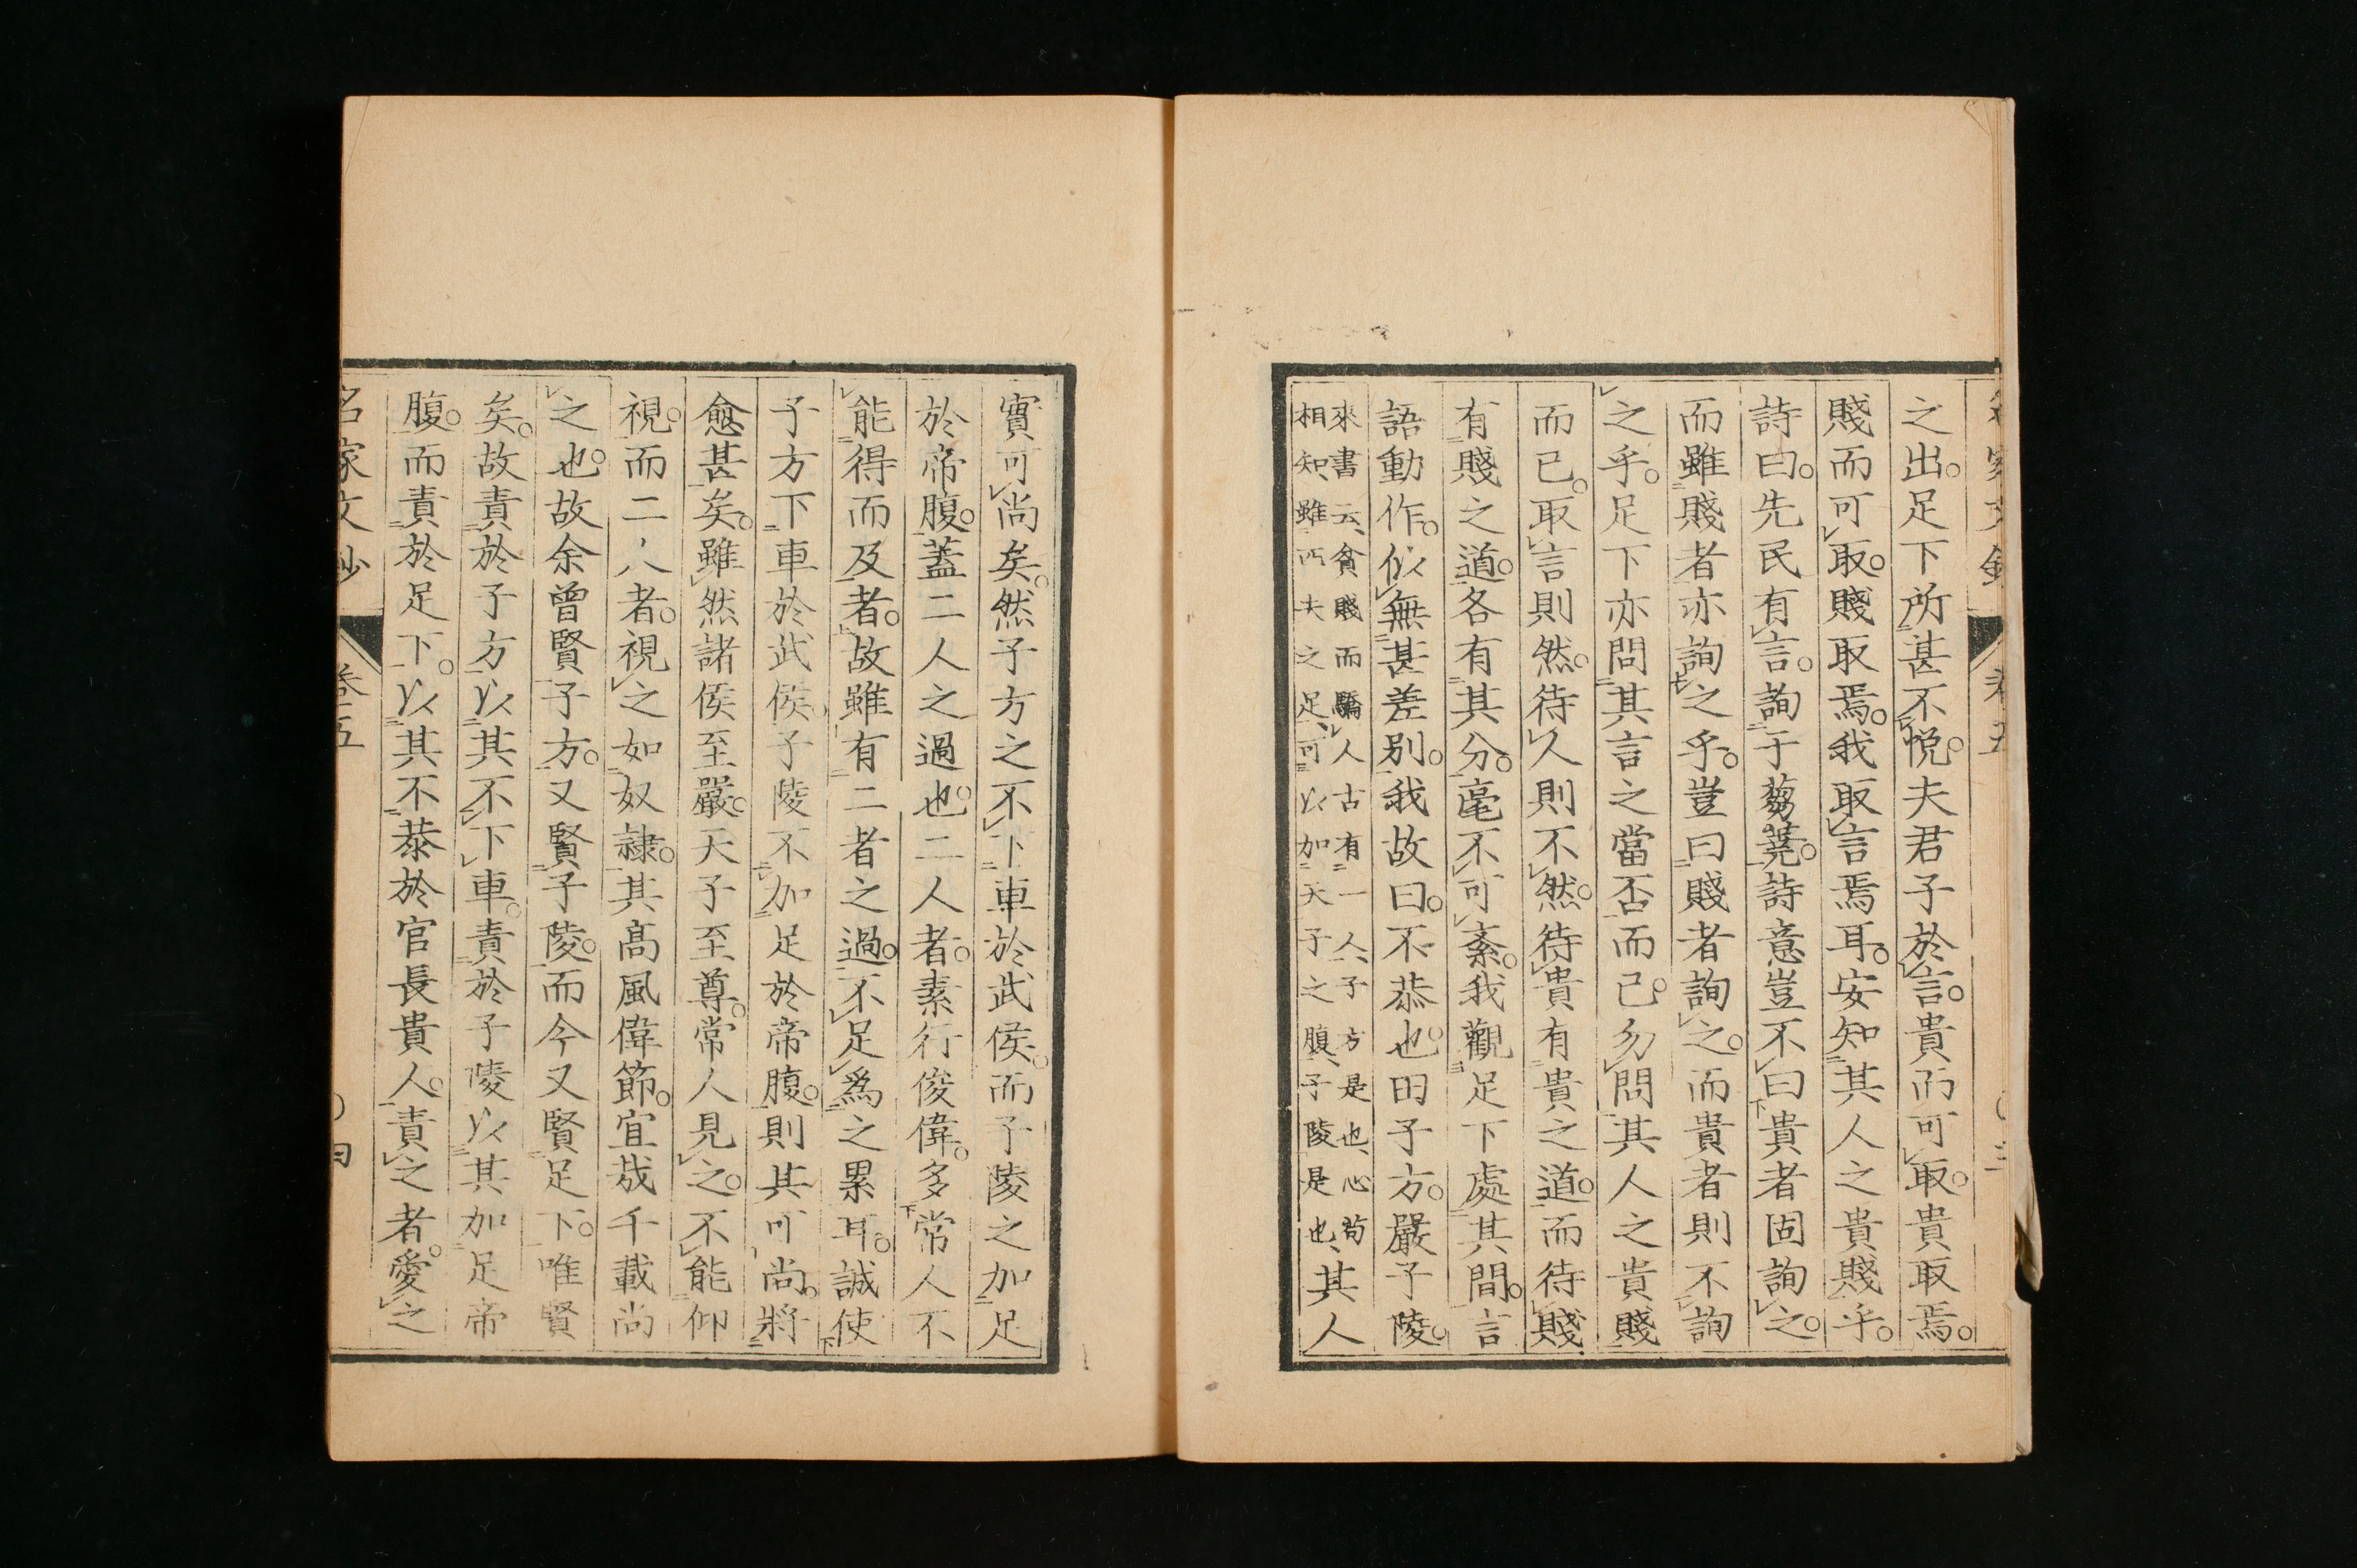 之出。足下所甚不悅。夫君子於言。貴而可取。貴取焉。
賤而可取。賤取焉。我取言焉耳。安知其人之貴賤乎。
詩曰。先民有言。詢于蒭蕘。詩意豈不曰貴者固詢之。
而雖賤者亦詢之乎。豈曰賤者詢之。而貴者則不詢
之乎。足下亦問其言之當否而已。勿問其人之貴賤
而已。取言則然。待人則不然。待貴有貴之道。而待賤
有賤之道。各有其分。毫不可紊。我觀足下處其間。言
語動作。似無甚差別。我故曰。不恭也。田子方。嚴子陵。
來書云、貧賤而驕人、古有一人、子方是也、心苟
相知、雖匹夫之足、可以加天子之腹、子陵是也、其人
實可尚矣。然子方之不下車於武侯。而子陵之加足
於帝腹。蓋二人之過也。二人者。素行俊偉。多常人不
能得而及者。故雖有二者之過。不足為之累耳。誠使
子方下車於武侯。子陵不加足於帝腹。則其可尚。將
愈甚矣。雖然諸侯至嚴。天子至尊。常人見之。不能仰
視。而二人者。視之如奴隸。其高風偉節。宜哉千載尚
之也。故余曾賢子方。又賢子陵。而今又賢足下。唯賢
矣。故責於子方。以其不下車。責於子陵以其加足帝
腹。而責於足下。以其不恭於官長貴人。責之者。愛之
名家文抄
卷五
〇四